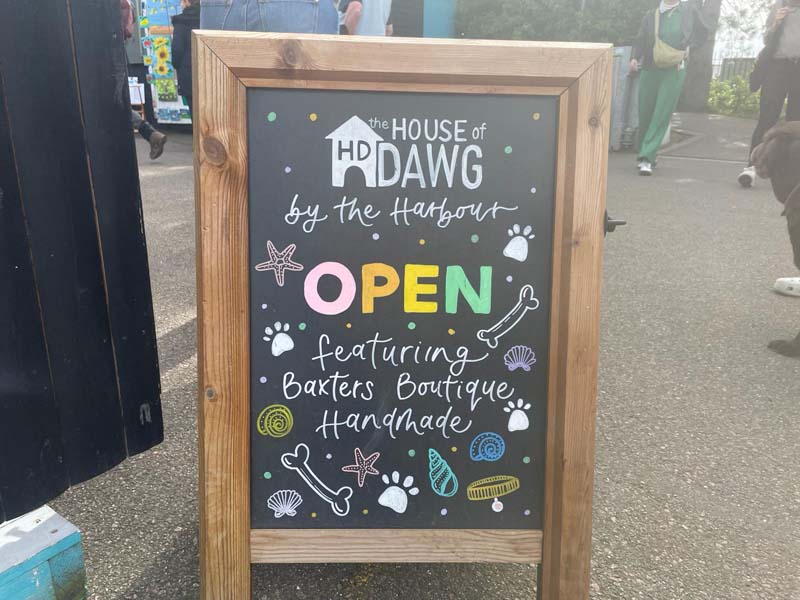 the HOUSE of
HD DAWG
by the Harbour
OPEN
featuring
Baxters Boutique
Handmade